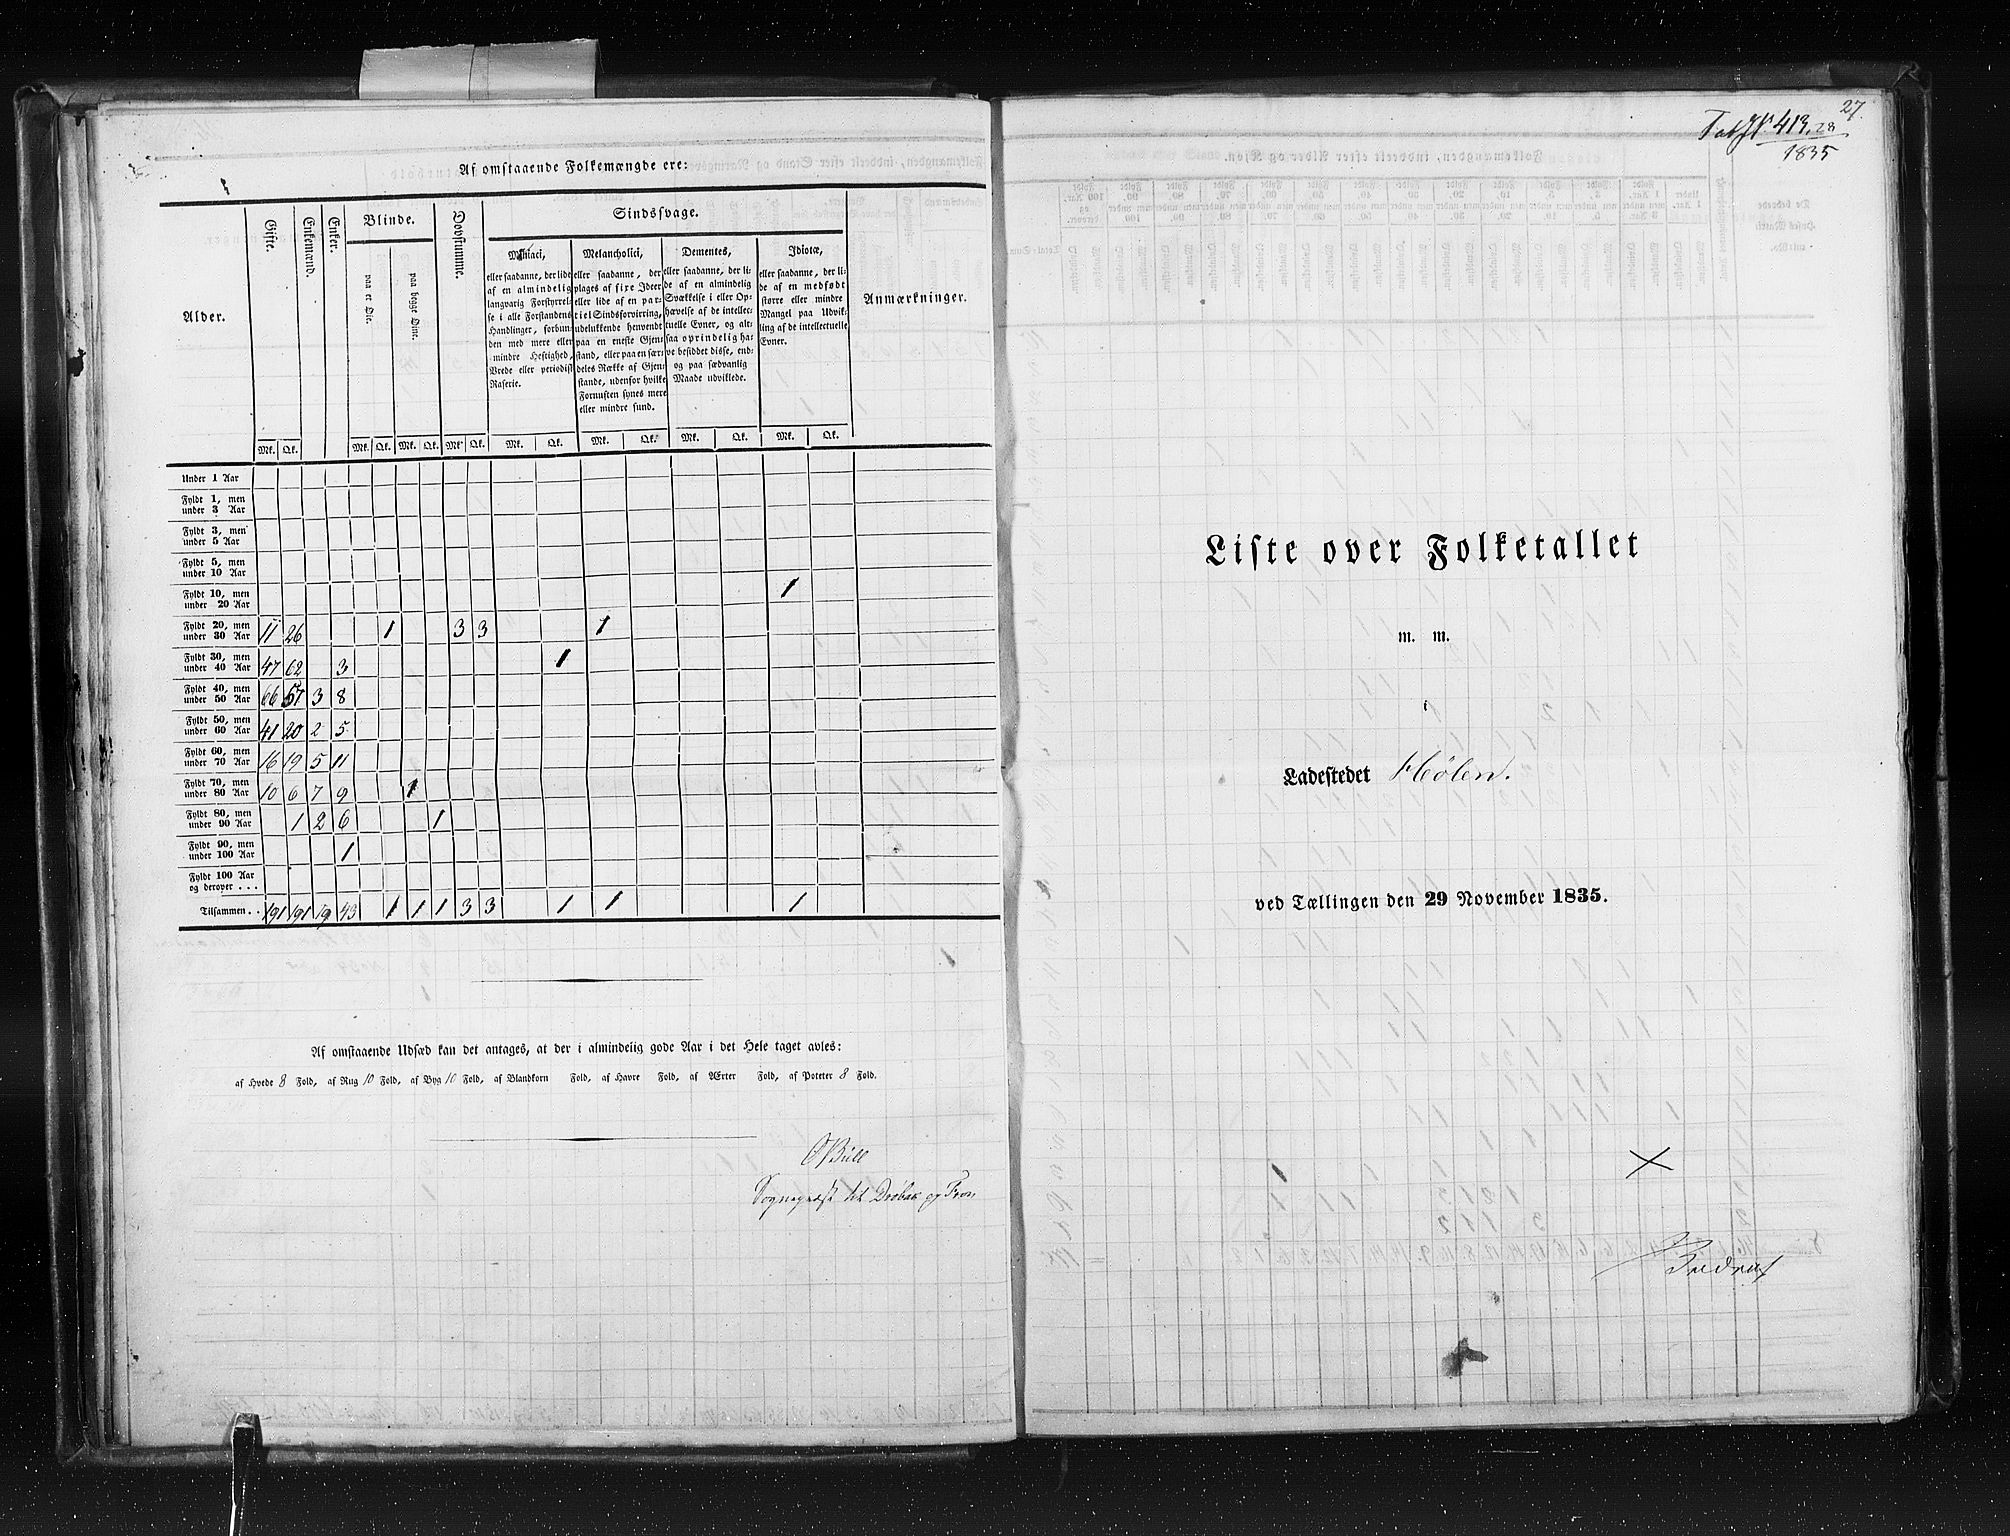 Af omstaaende Folkemængde ere:
Alder. Gifte. Enkemænd. Enker. Blinde. Døvstumme. Sindssvage. Anmærkninger.
paa et Øie. paa begge Øine.
Maniaci,
eller saadanne, der lide
af en almindelig
langvarig Forstyrrel-
se i alle Forstandens
Handlinger, forbun-
den med mere eller
mindre Heftighed,
Vrede eller periodisk
Raserie.
Melancholici,
eller saadanne, der
plages af fixe Ideer
eller lide af en par-
tiel Sindsforvirring,
udelukkende henvendt
paa en eneste Gjen-
stand, eller paa en sær-
deles Række af Gjen-
stande, udenfor hvilke
Fornuften synes mere
eller mindre sund.
Dementes,
eller saadanne, der li-
de af en almindelig
Svækkelse i eller Op-
hævelse af de intellec-
tuelle Evner, og alt-
saa oprindelig ha-
ve besiddet disse, end-
og paa sædvanlig
Maade udviklede.
Idiotæ,
eller saadanne, der li-
de af en medfødt
større eller mindre
Mangel paa Udvik-
ling af de intellectuelle
Evner.
Mk. Qk. Mk. Qk. Mk. Qk. Mk. Qk. Mk. Qk. Mk. Qk. Mk. Qk. Mk. Qk.
Under 1 Aar
Fyldt 1, men
under 3 Aar
Fyldt 3, men
under 5 Aar
Fyldt 5, men
under 10 Aar
Fyldt 10, men
under 20 Aar 1
Fyldt 20, men
under 30 Aar 11 26 1 3 3 1
Fyldt 30, men
under 40 Aar 47 62 3 1
Fyldt 40, men
under 50 Aar 66 57 3 8
Fyldt 50, men
under 60 Aar 41 20 2 5
Fyldt 60, men
under 70 Aar 16 19 5 11
Fyldt 70, men
under 80 Aar 10 6 7 9 1
Fyldt 80, men
under 90 Aar 1 2 6 1
Fyldt 90, men
under 100 Aar 1
Fyldt 100 Aar
og derover . . .
Tilsammen . . 191 191 19 43 1 1 1 3 3 1 1 1
Af omstaaende Udsæd kan det antages, at der i almindelig gode Aar i det Hele taget avles:
af Hvede 8 Fold, af Rug 10 Fold, af Byg 10 Fold, af Blandkorn Fold, af Havre Fold, af Ærter Fold, af Poteter 8 Fold.
Büll
Sognepræst til Drøbak og Fron
27
Tab № 413. 28
1835
Liste over Folketallet
m. m.
i
Ladestedet Hølen.
ved Tællingen den 29 November 1835.